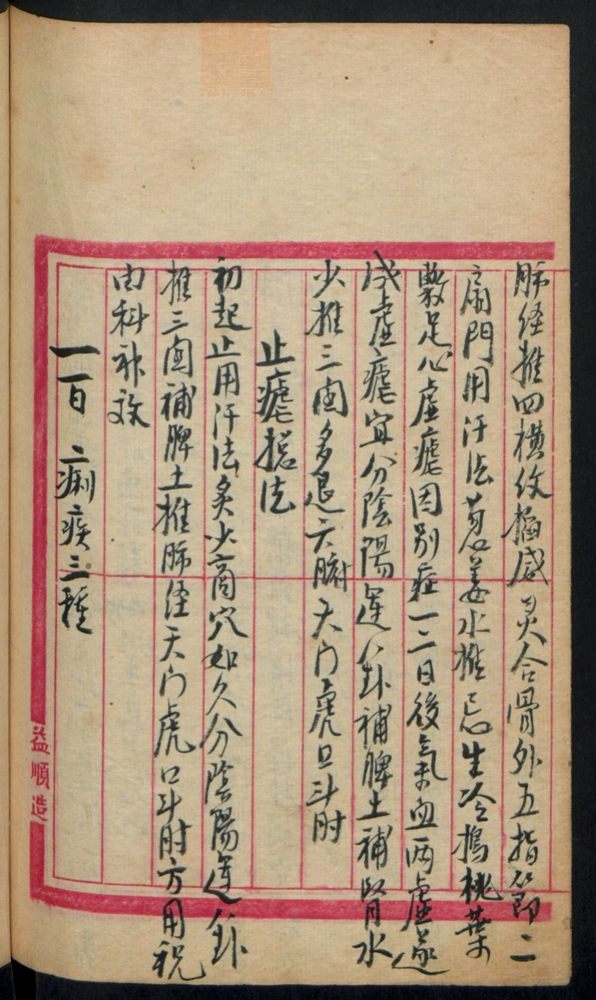 肺经推四橫纹掐威灵合骨外五指節二
扇門用汗法葱姜水推忌生冷搗桃葉
敷足心虛瘧因別症一二日後氣血兩虛遂
成虛瘧宜分陰陽運八卦補脾土補腎水
少推三関多退六腑天门虎口斗肘
止瘧揔法
初起止用汗法灸少商穴如久分陰陽運八卦
推三関補脾土推肺经天门虎口斗肘方用祝
由科神效
一百 痢疾三種
益順造